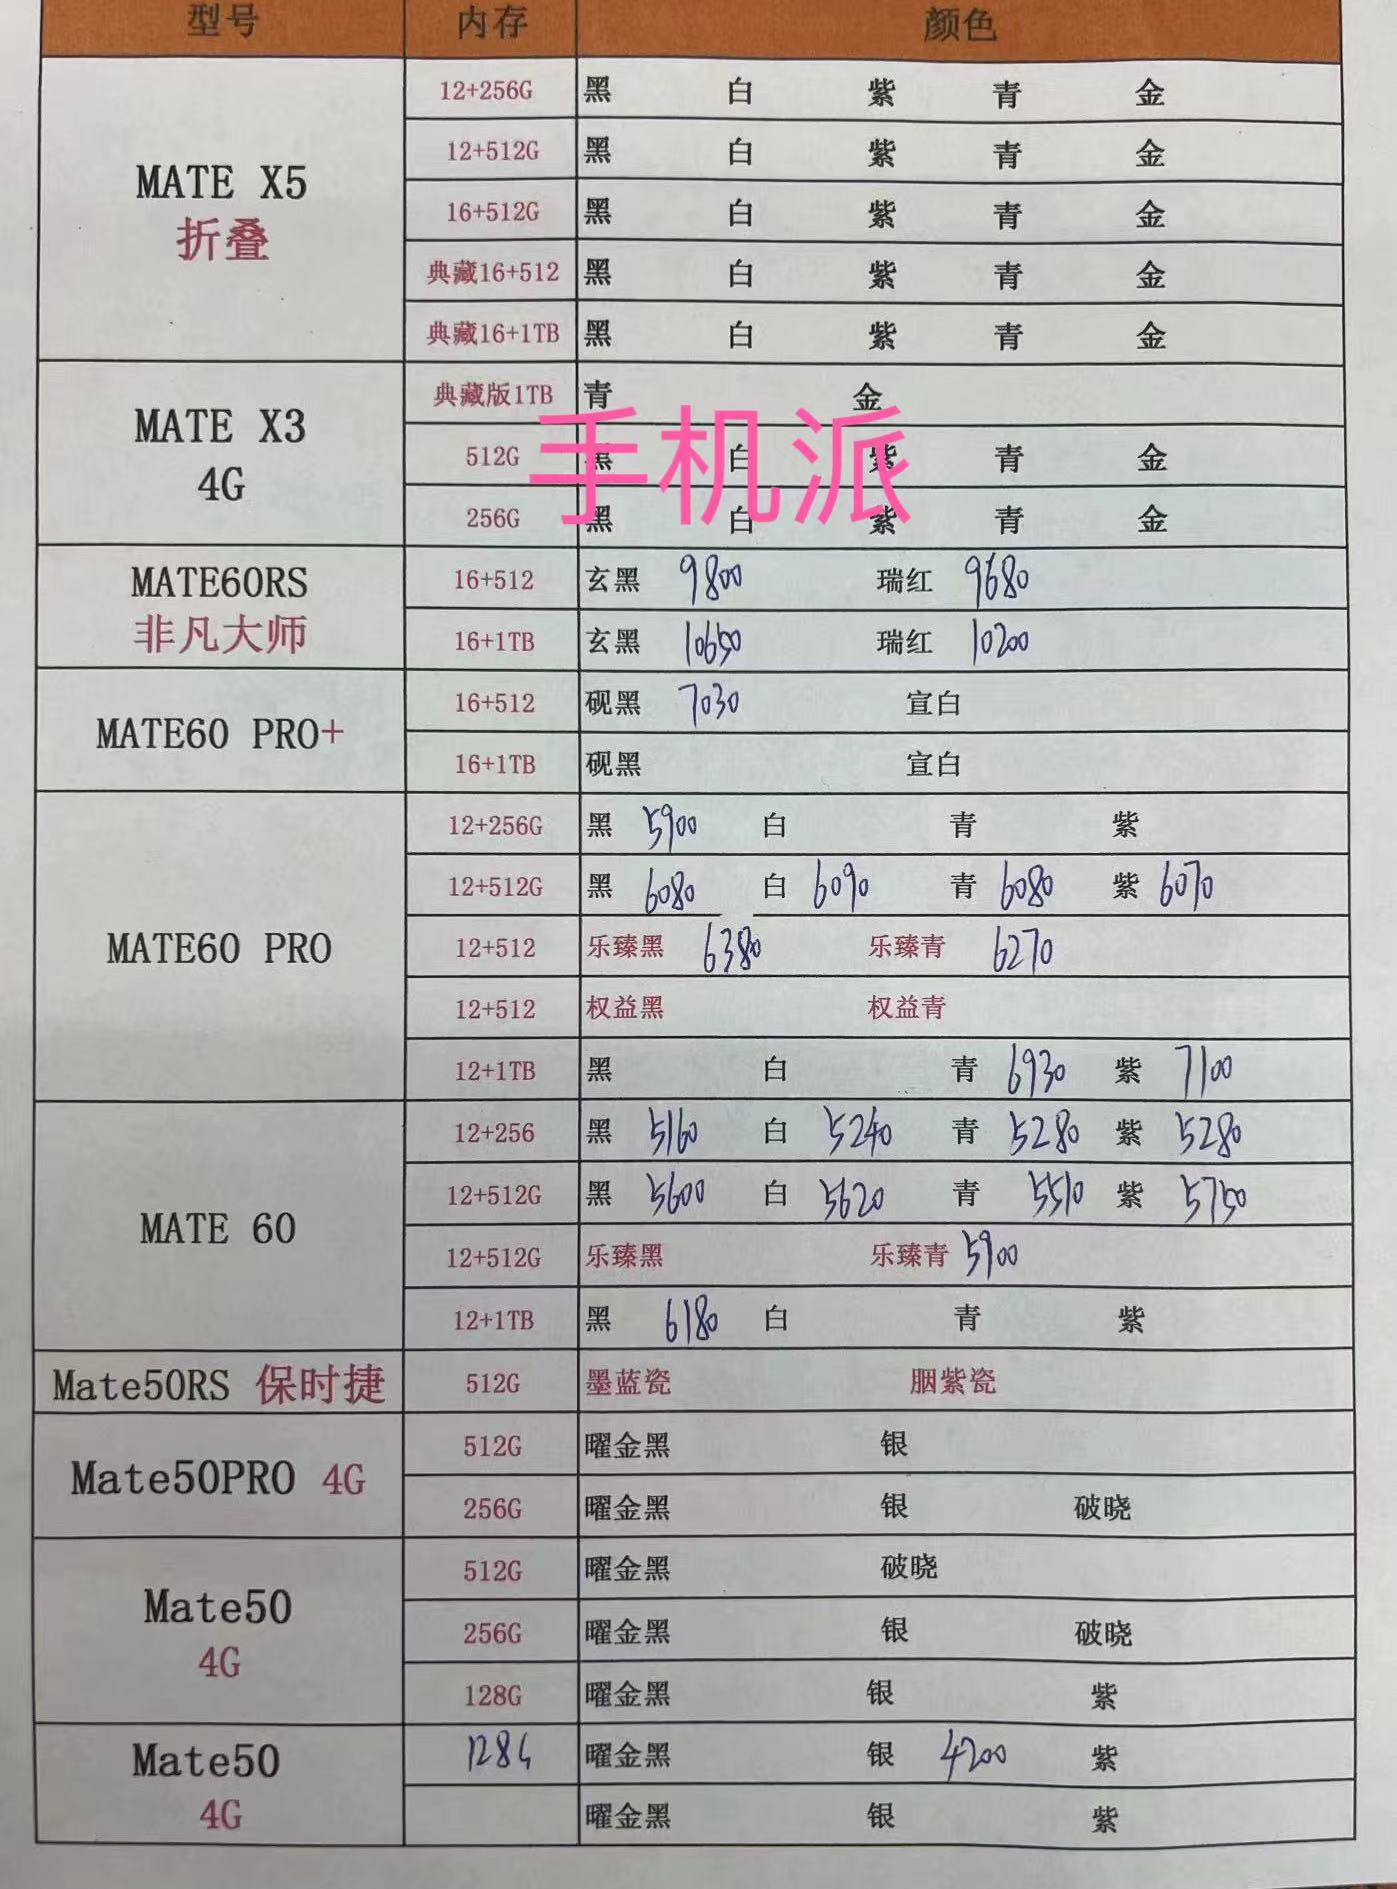 型号 内存 颜色
MATE X5
折叠
12+256G 黑 白 紫 青 金
12+512G 黑 白 紫 青 金
16+512G 黑 白 紫 青 金
典藏16+512 黑 白 紫 青 金
典藏16+1TB 黑 白 紫 青 金
MATE X3
4G
典藏版1TB 青 金
手机派
512G 黑 白 紫 青 金
256G 黑 白 紫 青 金
MATE60RS
非凡大师
16+512 玄黑 9800 瑞红 9680
16+1TB 玄黑 10650 瑞红 10200
MATE60 PRO+
16+512 砚黑 7030 宣白
16+1TB 砚黑 宣白
MATE60 PRO
12+256G 黑 5900 白 青 紫
12+512G 黑 6080 白 6090 青 6080 紫 6070
12+512 乐臻黑 6380 乐臻青 6270
12+512 权益黑 权益青
12+1TB 黑 白 青 6930 紫 7100
MATE 60
12+256 黑 5160 白 5240 青 5280 紫 5280
12+512G 黑 5600 白 5620 青 5510 紫 5750
12+512G 乐臻黑 乐臻青 5900
12+1TB 黑 6180 白 青 紫
Mate50RS 保时捷 512G 墨蓝瓷 胭紫瓷
Mate50PRO 4G
512G 曜金黑 银
256G 曜金黑 银 破晓
Mate50
4G
512G 曜金黑 破晓
256G 曜金黑 银 破晓
128G 曜金黑 银 紫
Mate50
4G
128G 曜金黑 银 4200 紫
曜金黑 银 紫